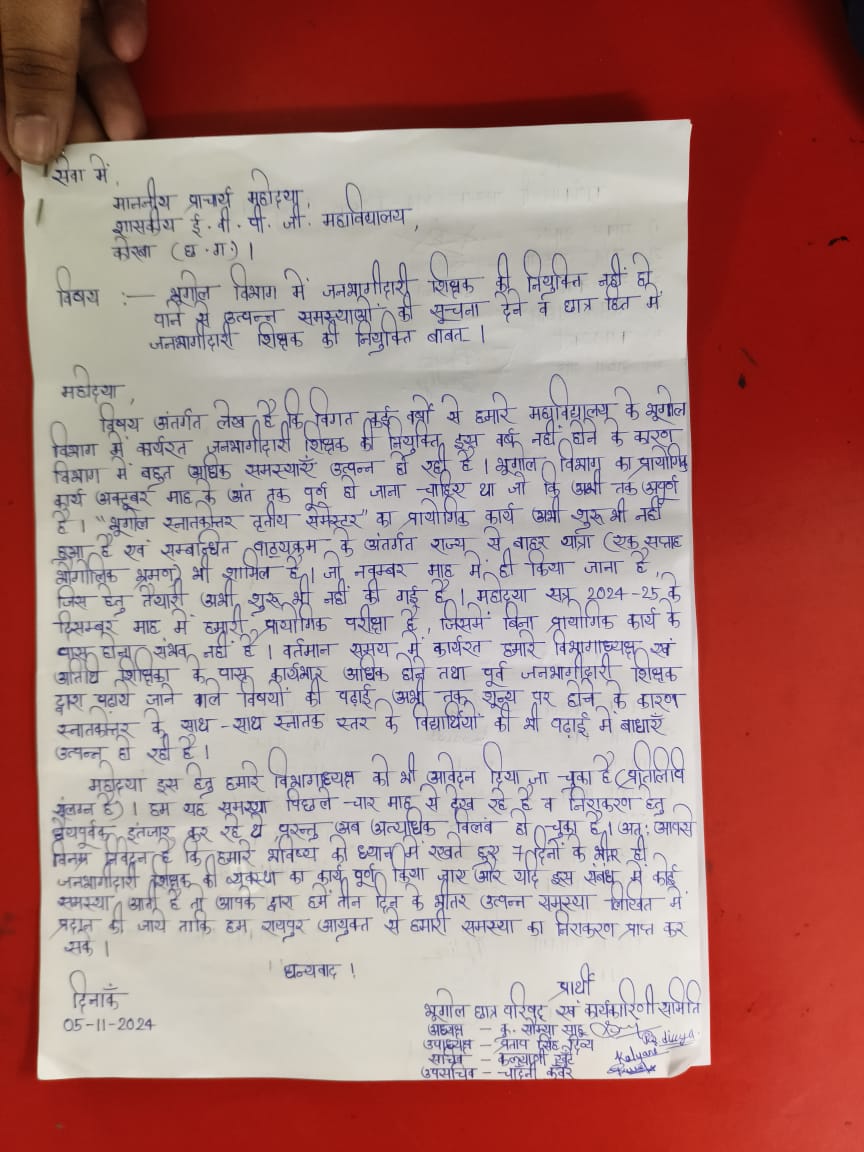 सेवा में,
माननीय प्राचार्य महोदया,
शासकीय ई. वी. पी. जी. महाविद्यालय,
कोरबा (छ.ग.)।
विषय :— भूगोल विभाग में जनभागीदारी शिक्षक की नियुक्ति नहीं हो
पाने से उत्पन्न समस्याओं की सुचना देने व छात्र हित में
जनभागीदारी शिक्षक की नियुक्ति बाबत् ।
महोदया,
विषय अंतर्गत लेख है कि विगत कई वर्षो से हमारे महाविद्यालय के भूगोल
विभाग में कार्यरत जनभागीदारी शिक्षक की नियुक्ति इस वर्ष नहीं होने के कारण
विभाग में बहुत अधिक समस्याएँ उत्पन्न हो रही है । भूगोल विभाग का प्रायोगिक
कार्य अक्टूबर माह के अंत तक पूर्ण हो जाना चाहिए था जो कि अभी तक अपूर्ण
है । "भूगोल स्नातकोत्तर तृतीय सेमेस्टर" का प्रायोगिक कार्य अभी शुरू भी नहीं
हुआ है एवं सम्बन्धित पाठ्यक्रम के अंतर्गत राज्य से बाहर यात्रा (एक सप्ताह
भौगोलिक भ्रमण) भी शामिल है । जो नवम्बर माह में ही किया जाना है,
जिस हेतु तैयारी अभी शुरू भी नहीं की गई है । महोदया सत्र 2024-25 के
दिसम्बर माह में हमारी प्रायोगिक परीक्षा है, जिसमें बिना प्रायोगिक कार्य के
पास होना संभव नहीं है । वर्तमान समय में कार्यरत हमारे विभागाध्यक्ष एवं
अतिथि शिक्षिका के पास कार्यभार अधिक होने तथा पूर्व जनभागीदारी शिक्षक
द्वारा पढ़ाये जाने वाले विषयों की पढ़ाई अभी तक शून्य पर होने के कारण
स्नातकोत्तर के साथ-साथ स्नातक स्तर के विद्यार्थियों की भी पढ़ाई में बाधाएँ
उत्पन्न हो रही है ।
महोदया इस हेतु हमारे विभागाध्यक्ष को भी आवेदन दिया जा चुका है (प्रतिलिपि
संलग्न है) । हम यह समस्या पिछले चार माह से देख रहे है व निराकरण हेतु
धैर्यपूर्वक इंतजार कर रहे थे परन्तु अब अत्यधिक विलंब हो चुका है । अत: आपसे
विनम्र निवेदन है कि हमारे भविष्य को ध्यान में रखते हुए 7 दिनों के भीतर ही
जनभागीदारी शिक्षक की व्यवस्था का कार्य पूर्ण किया जाए और यदि इस संबंध में कोई
समस्या आती है तो आपके द्वारा हमें तीन दिन के भीतर उत्पन्न समस्या लिखित में
प्रदान की जाये ताकि हम रायपुर आयुक्त से हमारी समस्या का निराकरण प्राप्त कर
सके ।
धन्यवाद !
दिनाँक
05-11-2024
प्रार्थी
भूगोल छात्र परिषद् एवं कार्यकारिणी समिति
अध्यक्ष - कु. सौम्या साहू
उपाध्यक्ष - प्रताप सिंह दिव्य
सचिव - कल्याणी खुंटे Kalyani
उपसचिव - चांदनी कंवर